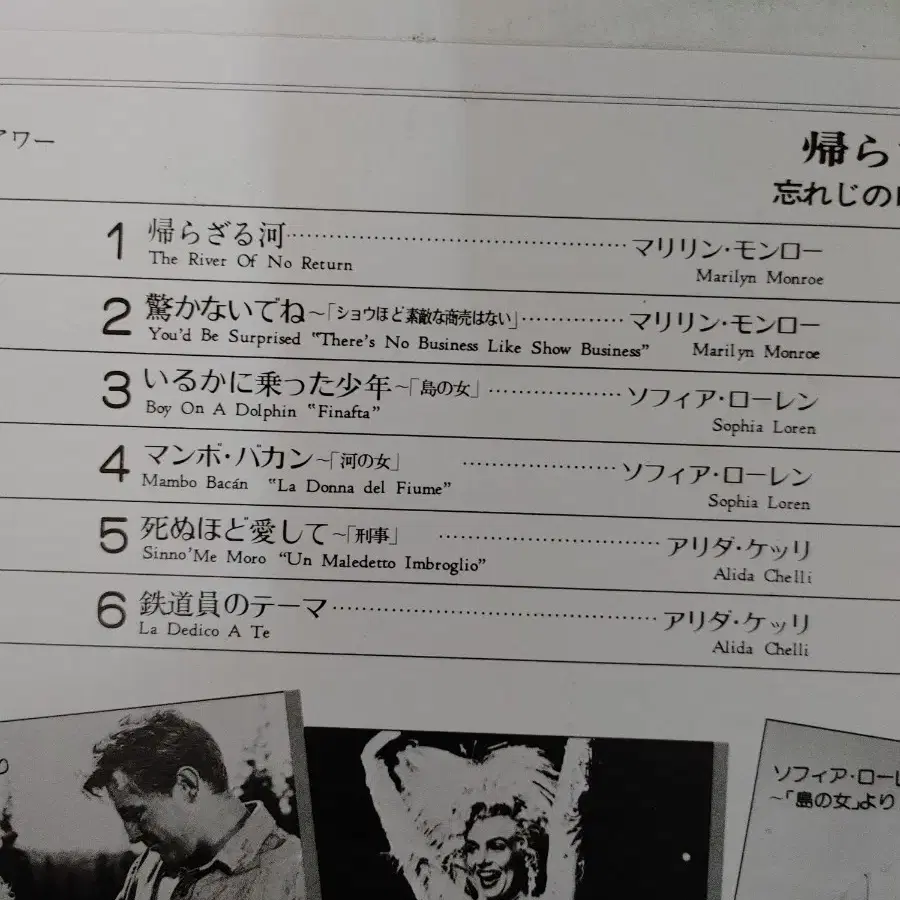 アワー
帰ら
忘れじの
1 帰らざる河 マリリン・モンロー
The River Of No Return Marilyn Monroe
2 驚かないでね～「ショウほど素敵な商売はない」 マリリン・モンロー
You'd Be Surprised "There's No Business Like Show Business" Marilyn Monroe
3 いるかに乗った少年～「島の女」 ソフィア・ローレン
Boy On A Dolphin "Finafta" Sophia Loren
4 マンボ・バカン～「河の女」 ソフィア・ローレン
Mambo Bacán "La Donna del Fiume" Sophia Loren
5 死ぬほど愛して～「刑事」 アリダ・ケッリ
Sinno'Me Moro "Un Maledetto Imbroglio" Alida Chelli
6 鉄道員のテーマ アリダ・ケッリ
La Dedico A Te Alida Chelli
ソフィア・ローレ
～「島の女」より